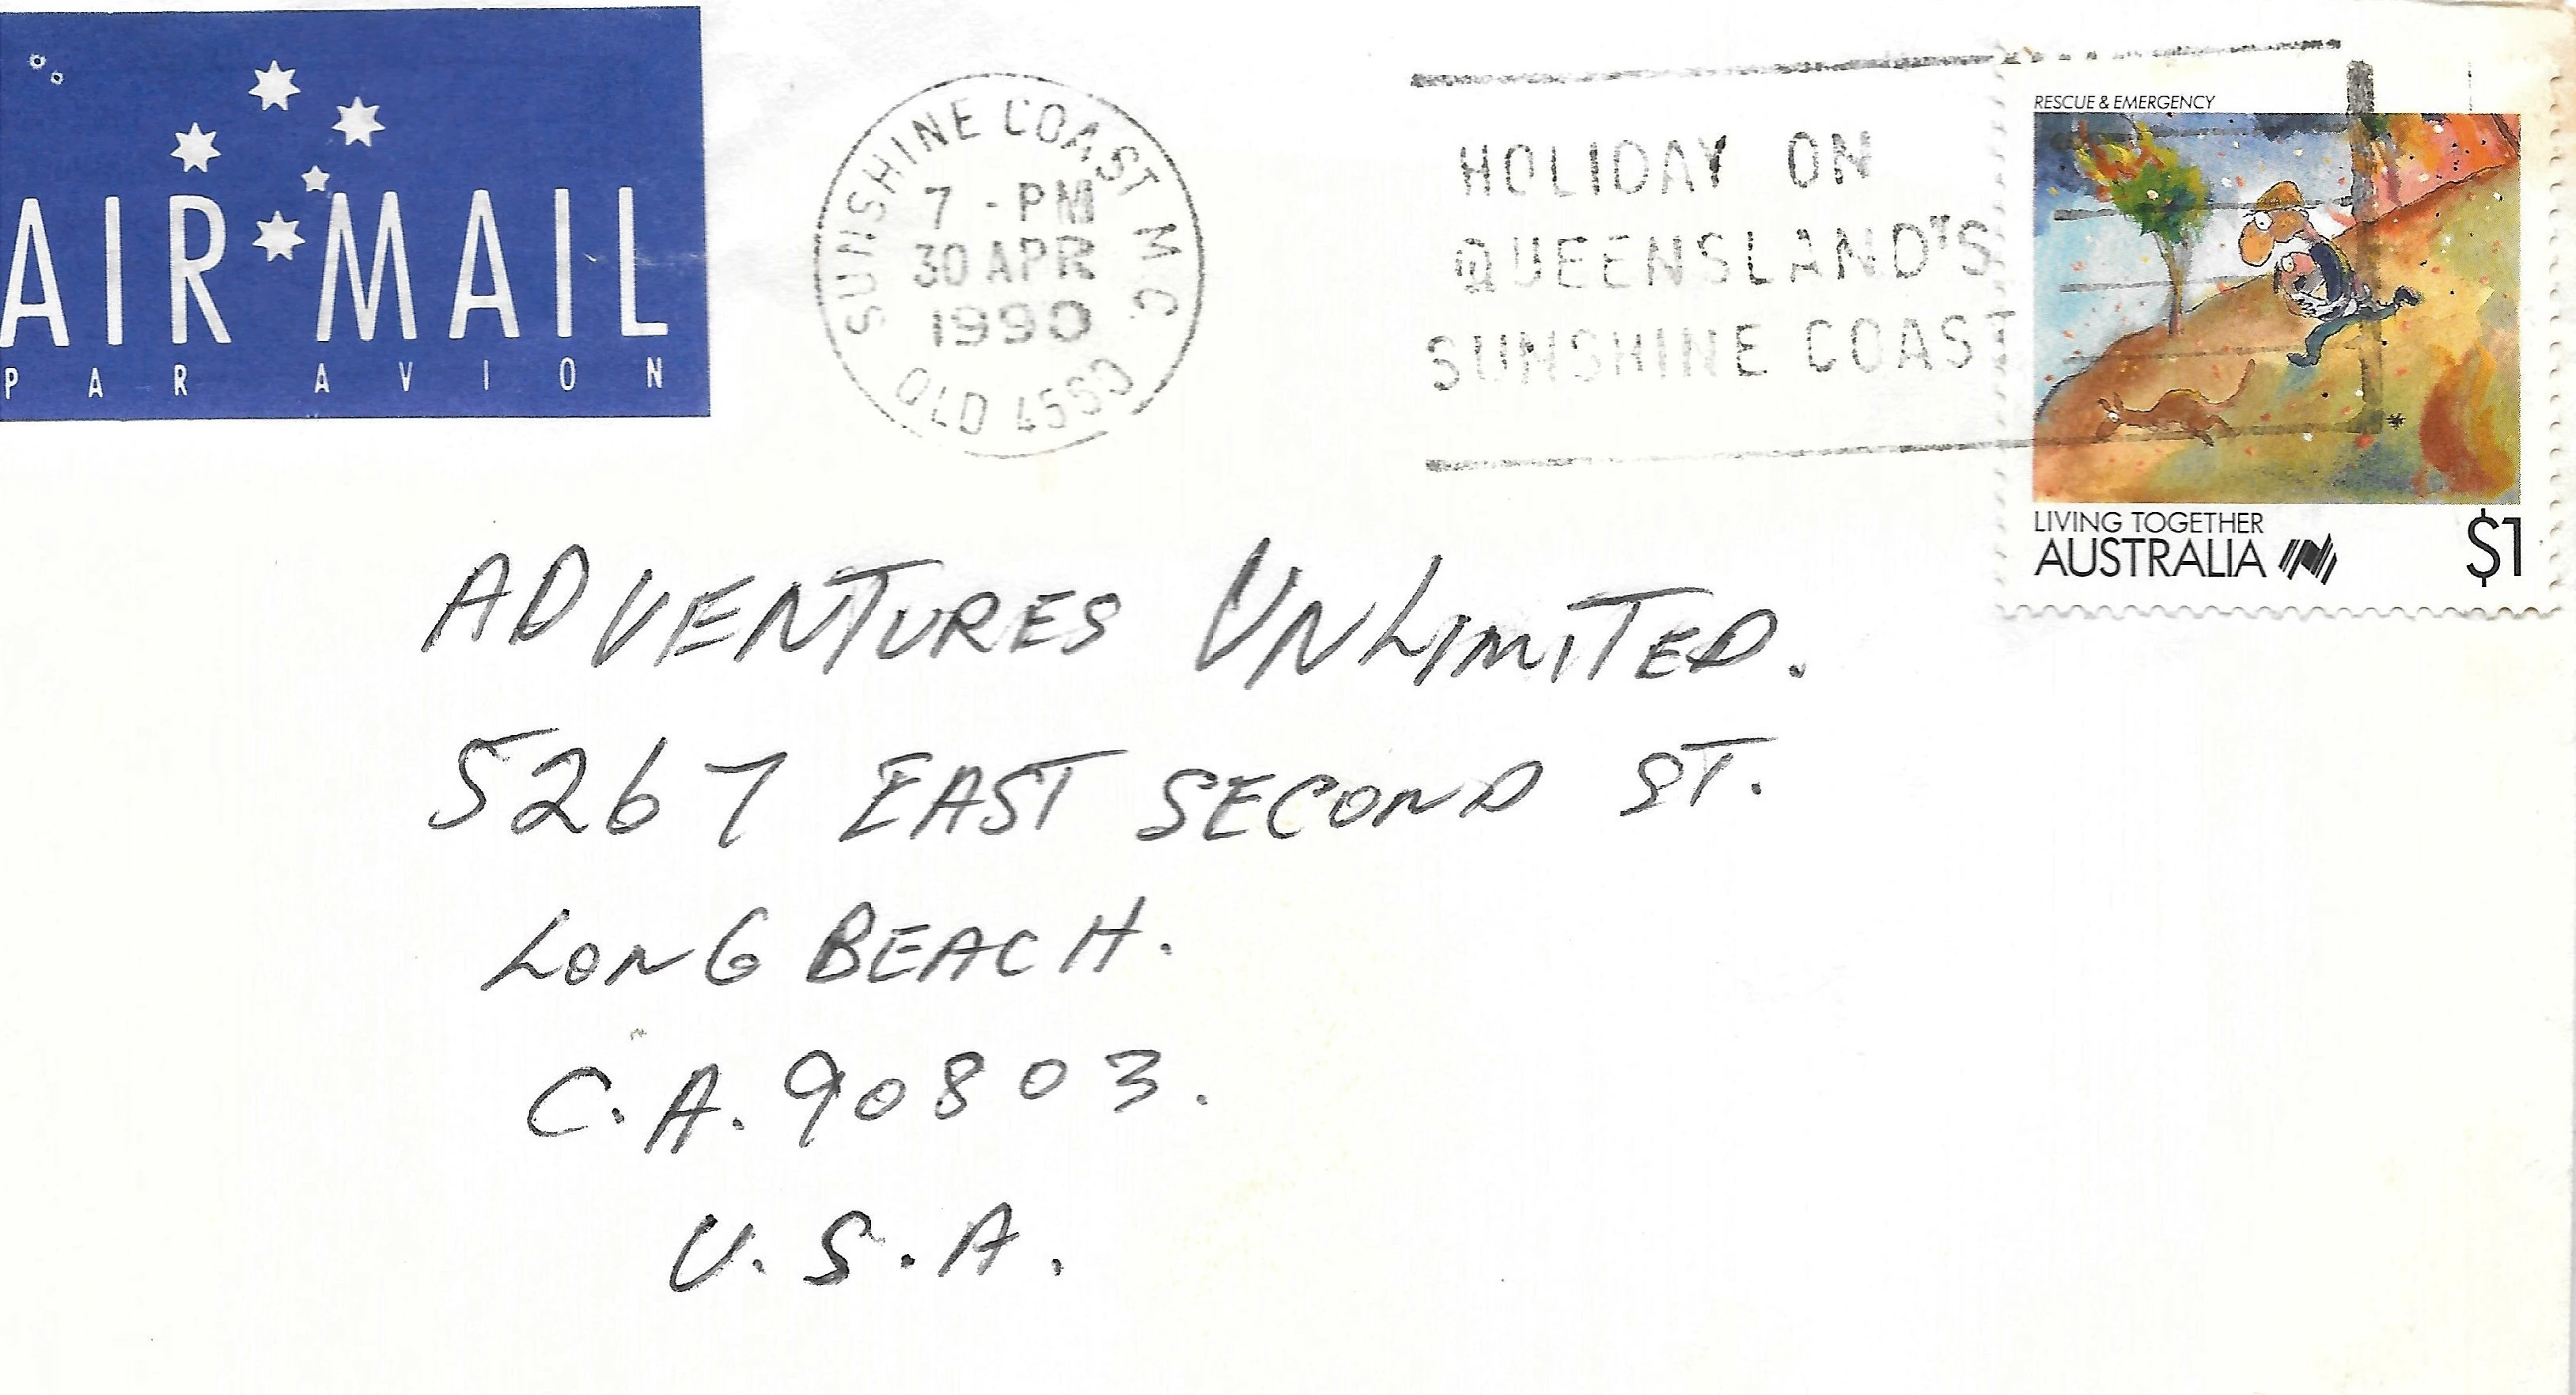 AIR MAIL
PAR AVION
SUNSHINE COAST M.C.
7 - PM
30 APR
1990
QLD 4560
HOLIDAY ON
QUEENSLAND'S
SUNSHINE COAST
RESCUE & EMERGENCY
LIVING TOGETHER
AUSTRALIA $1
ADVENTURES UNLIMITED.
5267 EAST SECOND ST.
LONG BEACH.
C.A. 90803.
U.S.A.